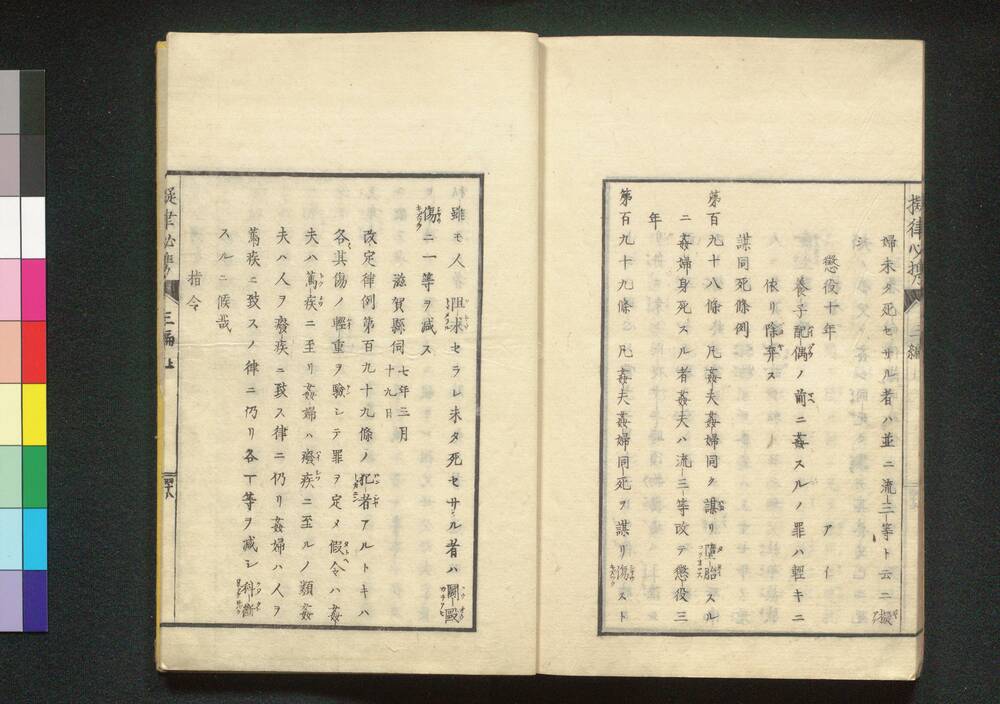 婦未タ死セサル者ハ並ニ流三等ト云ニ擬
シ
懲役十年
ア仁
養子配偶ノ前ニ姦スルノ罪ハ輕キニ
依リ除弃ス
謀同死條例
第百九十八條 凡姦夫姦婦同ク謀リ墮胎スル
ニ姦婦身死スル者姦夫ハ流三等改テ懲役三
年
第百九十九條 凡姦夫姦婦同死ヲ謀リ傷スト
雖モ人者阻求セラレ未タ死セサル者ハ鬭毆
傷ニ一等ヲ減ス
滋賀縣伺 七年三月十九日
改定律例第百九十九條ノ犯者アルトキハ
各其傷ノ輕重ヲ驗シテ罪ヲ定メ假令ハ姦
夫ハ篤疾ニ至リ姦婦ハ癈疾ニ至ルノ類姦
夫ハ人ヲ癈疾ニ致ス律ニ仍リ姦婦ハ人ヲ
篤疾ニ致スノ律ニ仍リ各一等ヲ減シ科斷
スルニ候哉
指令
三編 上